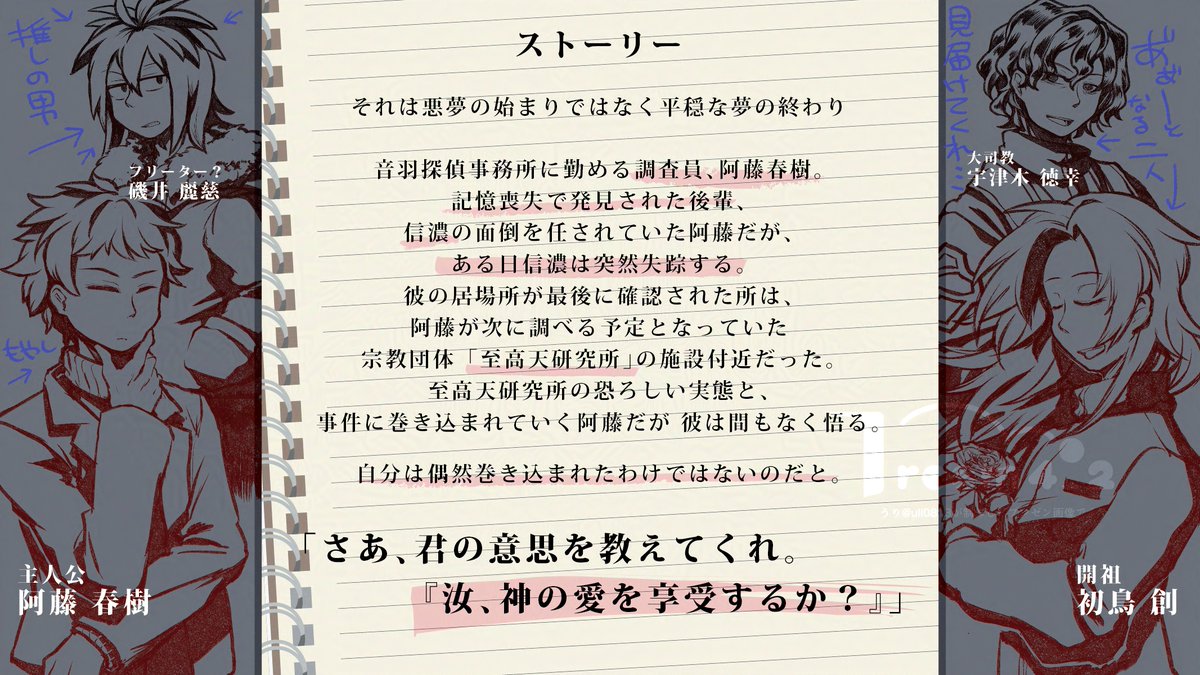 ストーリー
それは悪夢の始まりではなく平穏な夢の終わり
音羽探偵事務所に勤める調査員、阿藤春樹。
記憶喪失で発見された後輩、
信濃の面倒を任されていた阿藤だが、
ある日信濃は突然失踪する。
彼の居場所が最後に確認された所は、
阿藤が次に調べる予定となっていた
宗教団体「至高天研究所」の施設付近だった。
至高天研究所の恐ろしい実態と、
事件に巻き込まれていく阿藤だが 彼は間もなく悟る。
自分は偶然巻き込まれたわけではないのだと。
「さあ、君の意思を教えてくれ。
『汝、神の愛を享受するか？』」
推しの男
フリーター？
磯井 麗慈
もやし
主人公
阿藤 春樹
見届けてくれ
なる二人
大司教
宇津木 徳幸
開祖
初鳥 創